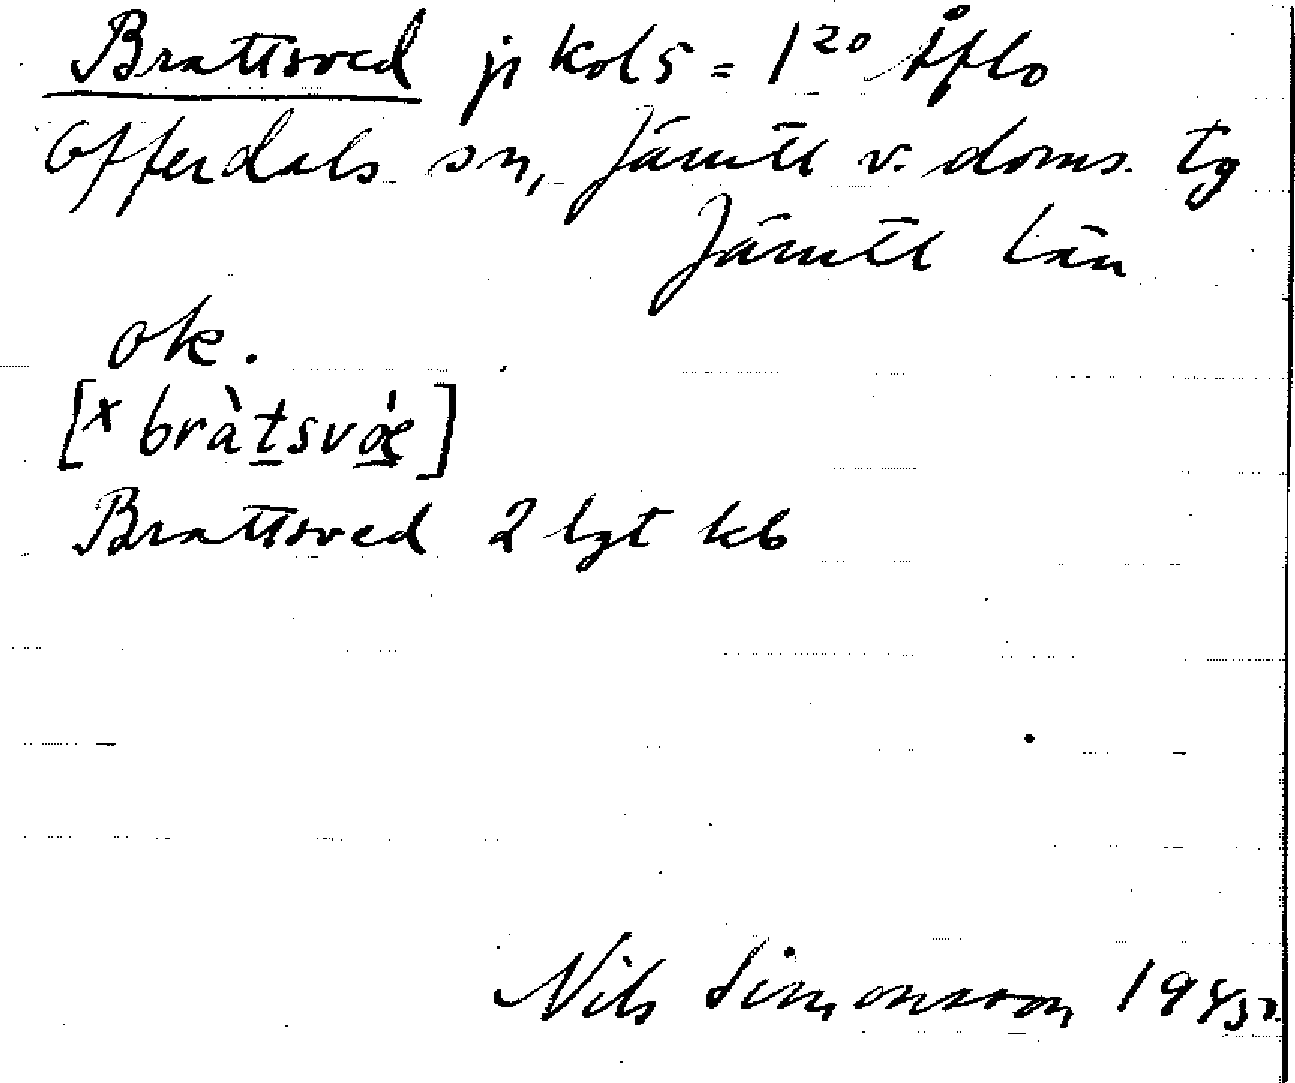 Brattsved ji kols = 1²⁰ Åflo
Offerdals sn, Jämtl v. doms. tg
Jämtl län
ok.
[× bràt̲svǽ̲]
Brattsved 2 lgt kb
Nils Simonsson